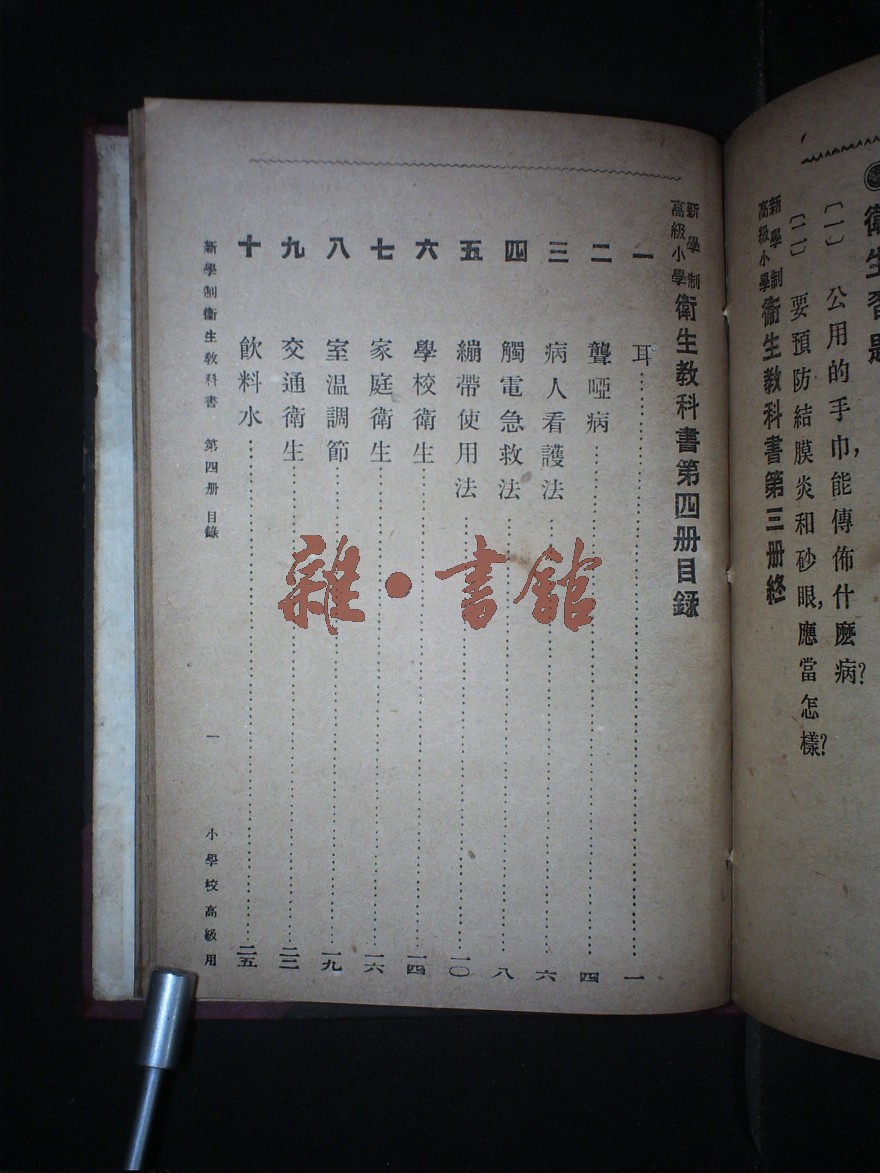 衛生習題
〔一〕 公用的手巾,能傳佈什麽病?
〔二〕 要預防結膜炎和砂眼,應當怎樣?
新學制高級小學衛生教科書第三册終
新學制高級小學衛生教科書第四册目録
一 耳 一
二 聾啞病 四
三 病人看護法 六
四 觸電急救法 八
五 繃帶使用法 一〇
六 學校衛生 一四
七 家庭衛生 一六
八 室温調節 一九
九 交通衛生 二三
十 飲料水 二五
新學制衛生教科書 第四册 目錄 一 小學校高級用
雜·書館